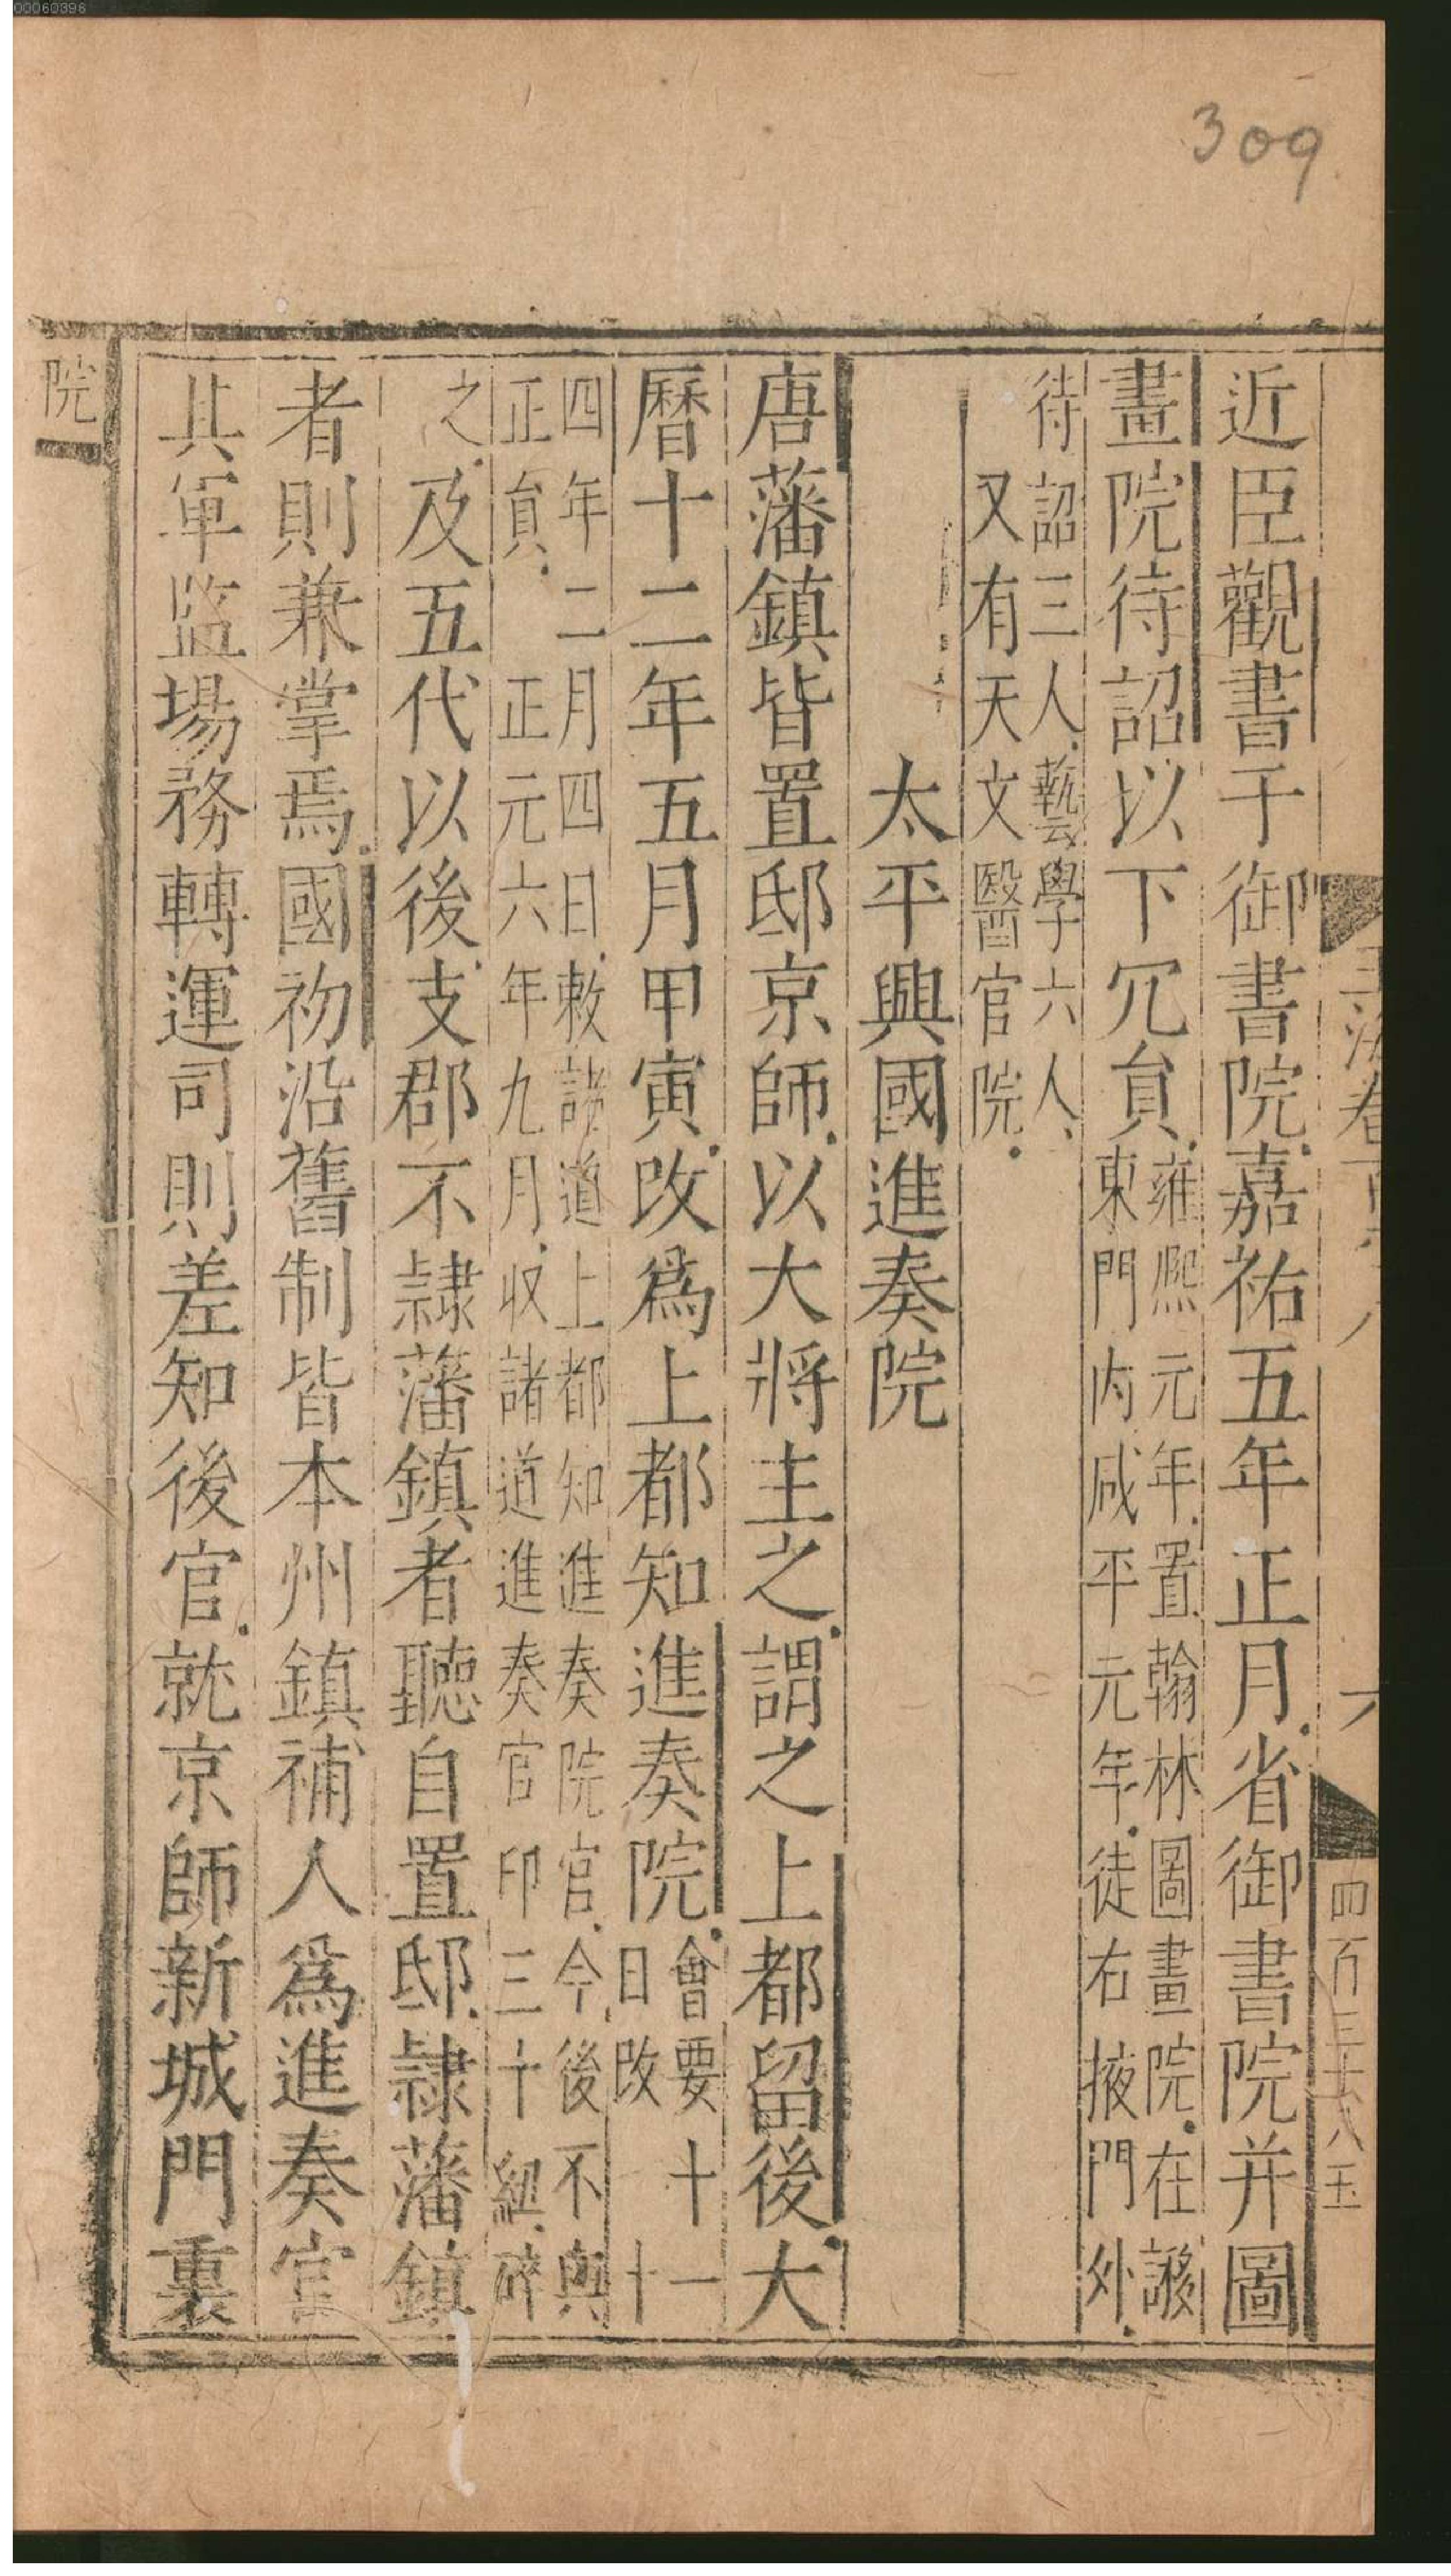 00060396
309
近臣觀書于御書院嘉祐五年正月省御書院并圖
畫院待詔以下冗貟雍熙元年置翰林圖畫院在謻
東門內咸平元年徒右掖門外
待詔三人藝學六人
又有天文醫官院
太平興國進奏院
唐藩鎮皆置邸京師以大將主之謂之上都留後大
曆十二年五月甲寅改爲上都知進奏院會要十一
日改十
四年二月四日敕諸道上都知進奏院官今後不與
正貟正元六年九月收諸道進奏官印三十紐碎
之及五代以後支郡不隷藩鎮者聽自置邸隷藩鎮
者則兼掌焉國初沿舊制皆本州鎮補人爲進奏官
其軍監場務轉運司則差知後官就京師新城門裏
院